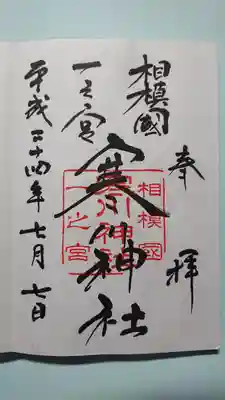 奉拝
相模國
一之宮
寒川神社
平成二十四年七月七日
相模國
寒川神社
一之宮